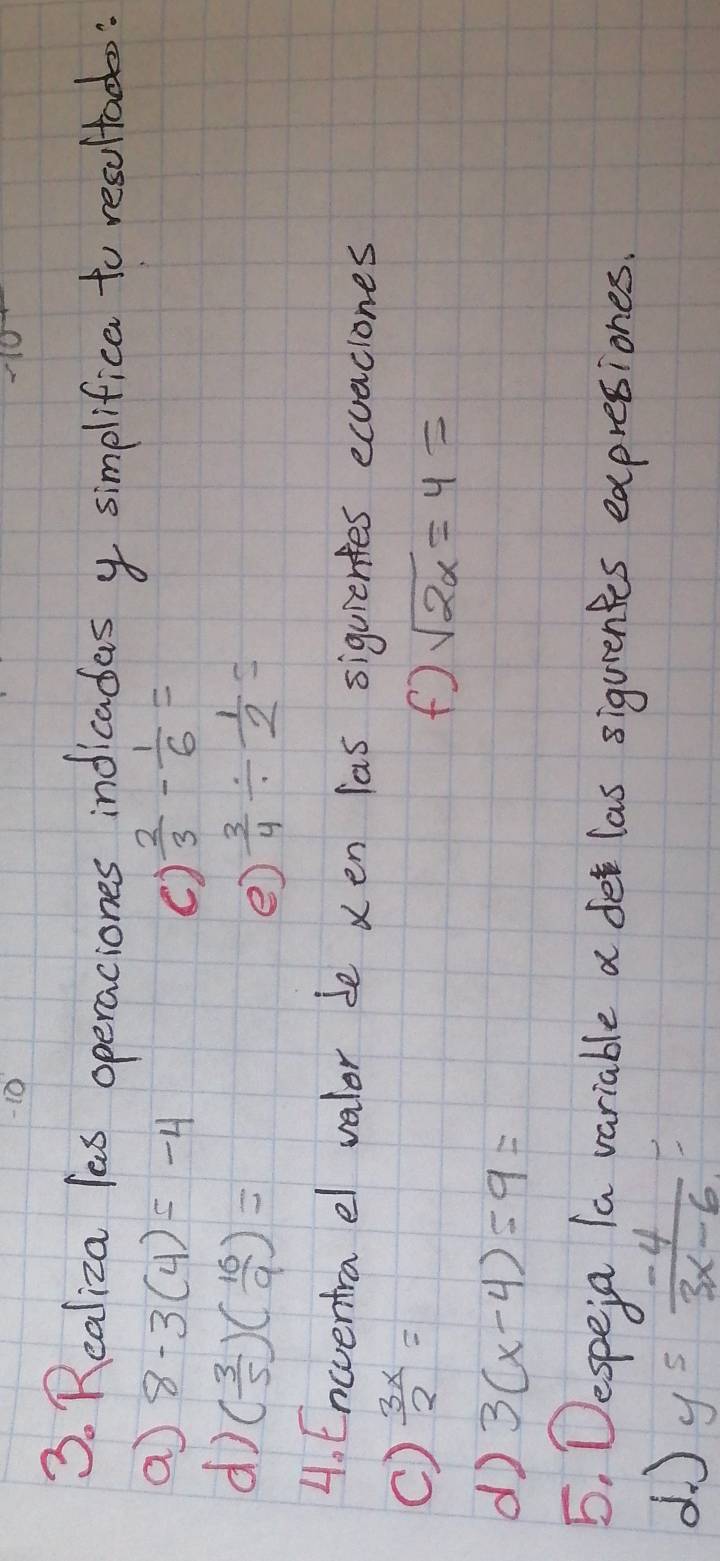 -10 -10
3. Realiza las operaciones indicadas y simplifica tu resultado:
a) 8-3(4)=-4 c) 2/3 - 1/6 =
d) (3/5)(10/9)= e) 3/4 ÷ 1/2 =
4. Encuentra el valor de x en las siguientes ecuaciones
c) 3x/2 = f) √2x = 4 =
d) 3(x-4)=9=
5. Despeja la variable x de las siguientes expresiones.
d.) y = -4/3x-6 =